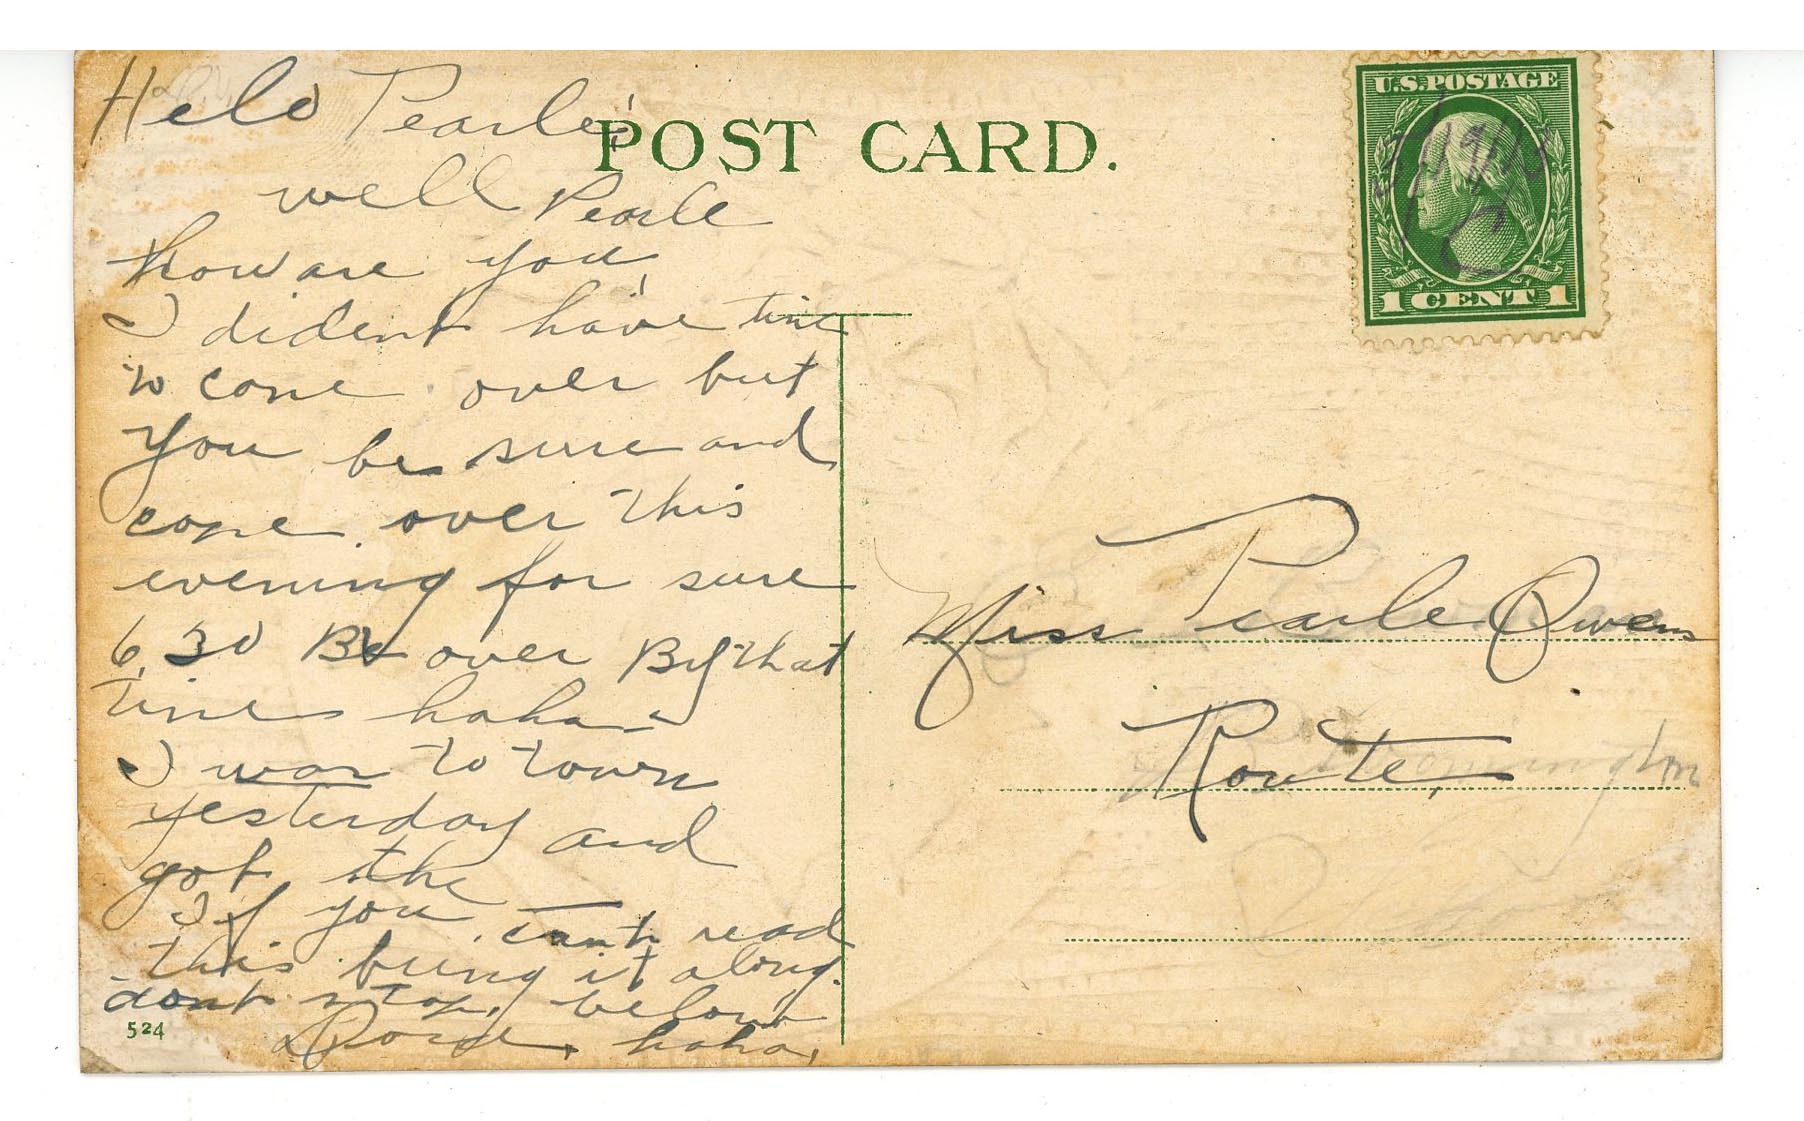 Helo Pearle,
POST CARD.
U.S. POSTAGE
1 CENT 1
well Pearle
how are you,
I dident have time
to come over but
you be sure and
come over this
evening for sure
6,30 Be over By that
time haha
I was to town
yesterday and
got the
If you cant read
this bring it along.
dont stop,
haha,
524
Miss Pearle Owens
Route,